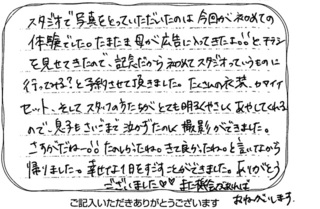 スタジオで写真をとっていただいたのは今回が初めての
体験でした。たまたま母が広告に入ってきたよ!!と、チラシ
を見せてきたので、記念だから初めてスタジオっていうものに
行ってみる?と予約させて頂きました。たくさんの衣装、カワイイ
セット、そしてスタッフの方たちがとても明るくやさしくあやしてくれる
ので、息子もさいごまで泣かずたのしく撮影ができました。
さすがだね〜。!!たのしかったね。きて良かったね。と言いながら
帰りました。幸せな1日をすごすことができました。ありがとう
ございました♡♥また機会があれば
おねがいします。
ご記入いただきありがとうございます